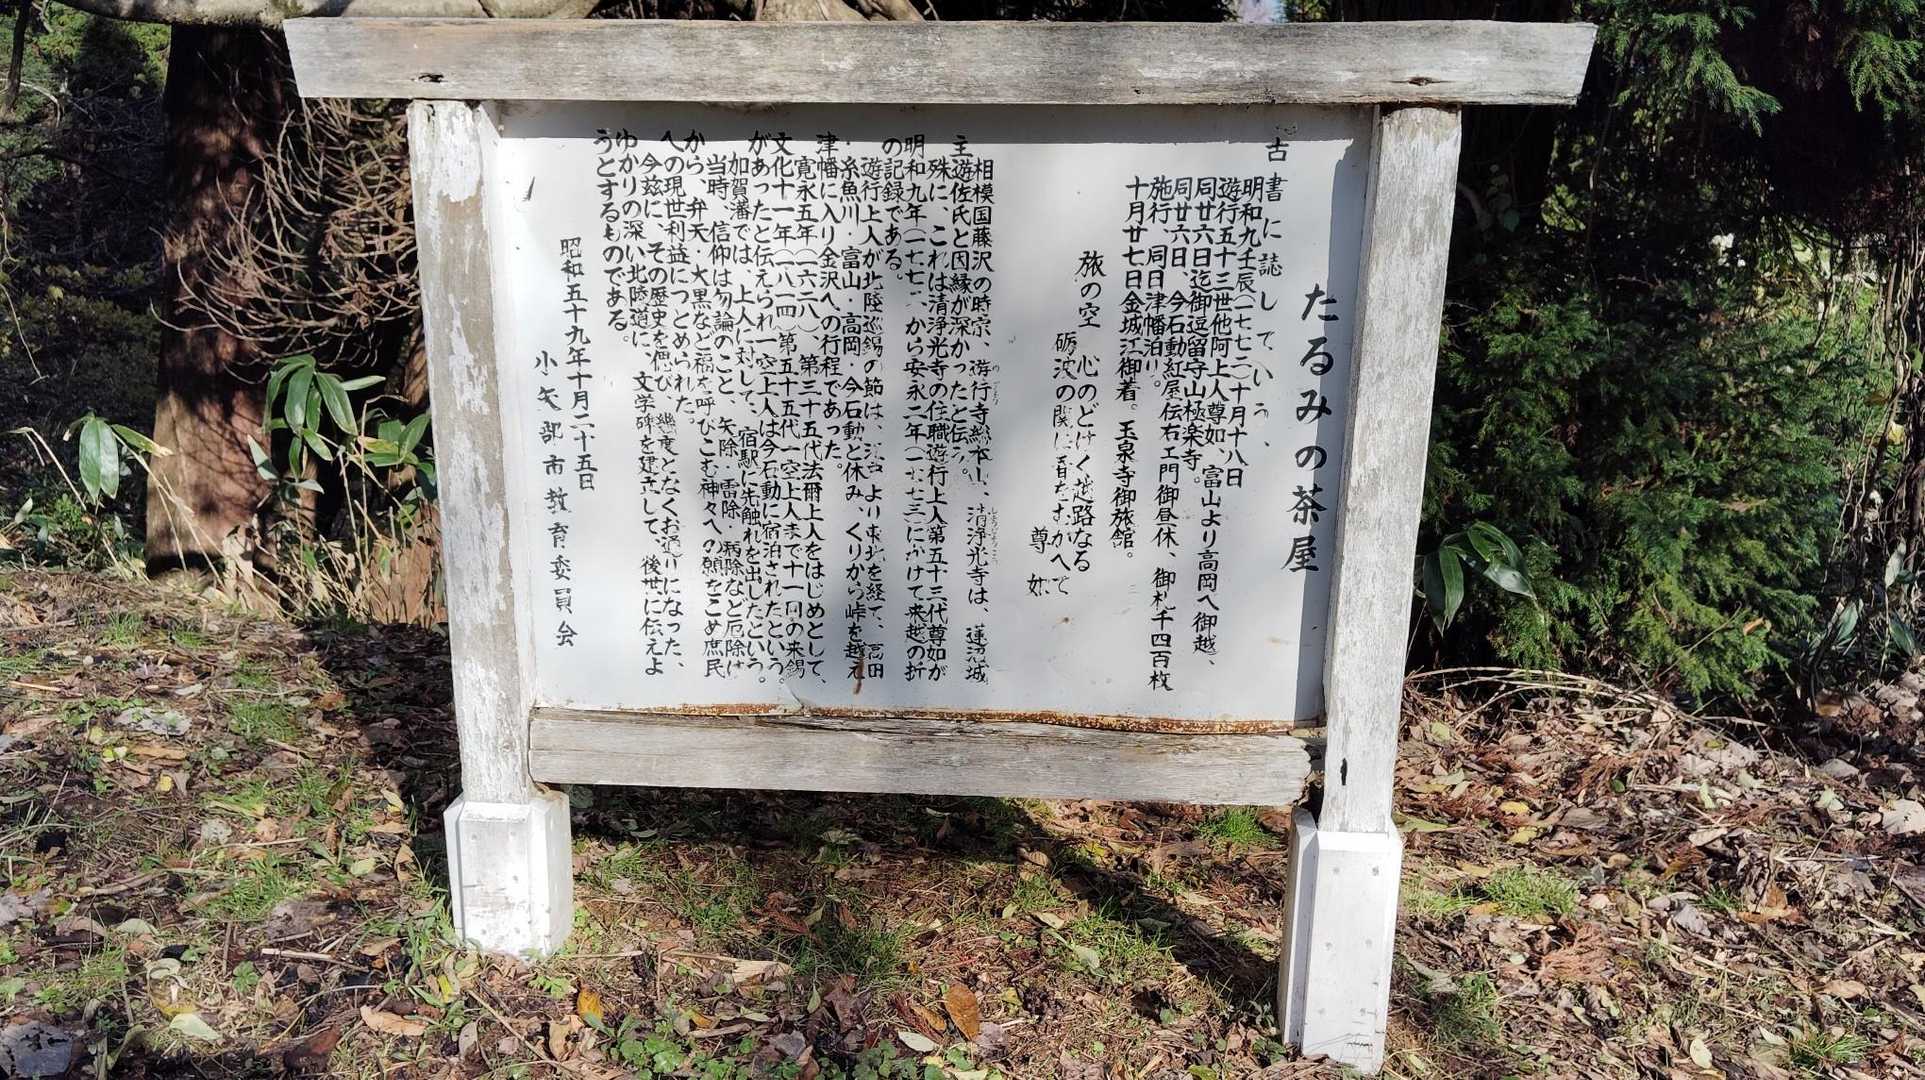 たるみの茶屋
古書に誌している、
明和九壬辰(一七七二)十月十八日
遊行五十三世他阿上人尊如、富山より高岡へ御越、
同廿六日迄御逗留守山極楽寺。
同廿六日、今石動紅屋伝右エ門御昼休、御札千四百枚
施行、同日津幡泊り。
十月廿七日金城江御着。玉泉寺御旅館。
旅の空 心のどけく越路なる
砺波の関に春をむかへて
尊如
相模国藤沢の時宗、遊行寺総本山、清浄光寺は、蓮沼城
主遊佐氏と因縁が深かったと伝う。
殊に、これは清浄光寺の住職遊行上人第五十三代尊如が
明和九年(一七七二から安永二年(一七七三)にかけて来越の折
の記録である。
遊行上人が北陸巡錫の節は、より東北を経て、高田
・糸魚川・富山・高岡・今石動と休み、くりから峠を越え
津幡に入り金沢への行程であった。
寛永五年(一六二八)第三十五代法爾上人をはじめとして、
文化十一年(一八一四)第五十五代一空上人まで十一回の来錫
があったと伝えられ一空上人は今石動に宿泊されたという。
加賀藩では、上人に対して、宿駅に先触れを出したという。
当時、信仰は勿論のこと、矢除・雷除・病除など厄除け
から、弁天・大黒など福を呼びこむ神々への願をこめ庶民
への現世利益につとめられた。
今茲に、その歴史を偲び、幾度となくお通りになった、
ゆかりの深い北陸道に、文学碑を建立して、後世に伝えよ
うとするものである。
昭和五十九年十月二十五日
小矢部市教育委員会